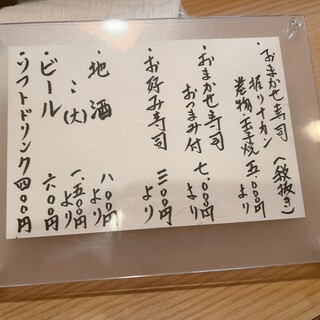 ・おまかせ寿司 (税抜き)
握リ十カン
巻物・玉子焼 五.〇〇〇円より
・おまかせ寿司
おつまみ付 七.〇〇〇円より
・お好み寿司 三〇〇円より
・地酒 八〇〇円より
〃 (大) 一.五〇〇円より
・ビール 六〇〇円
・ソフトドリンク 四〇〇円